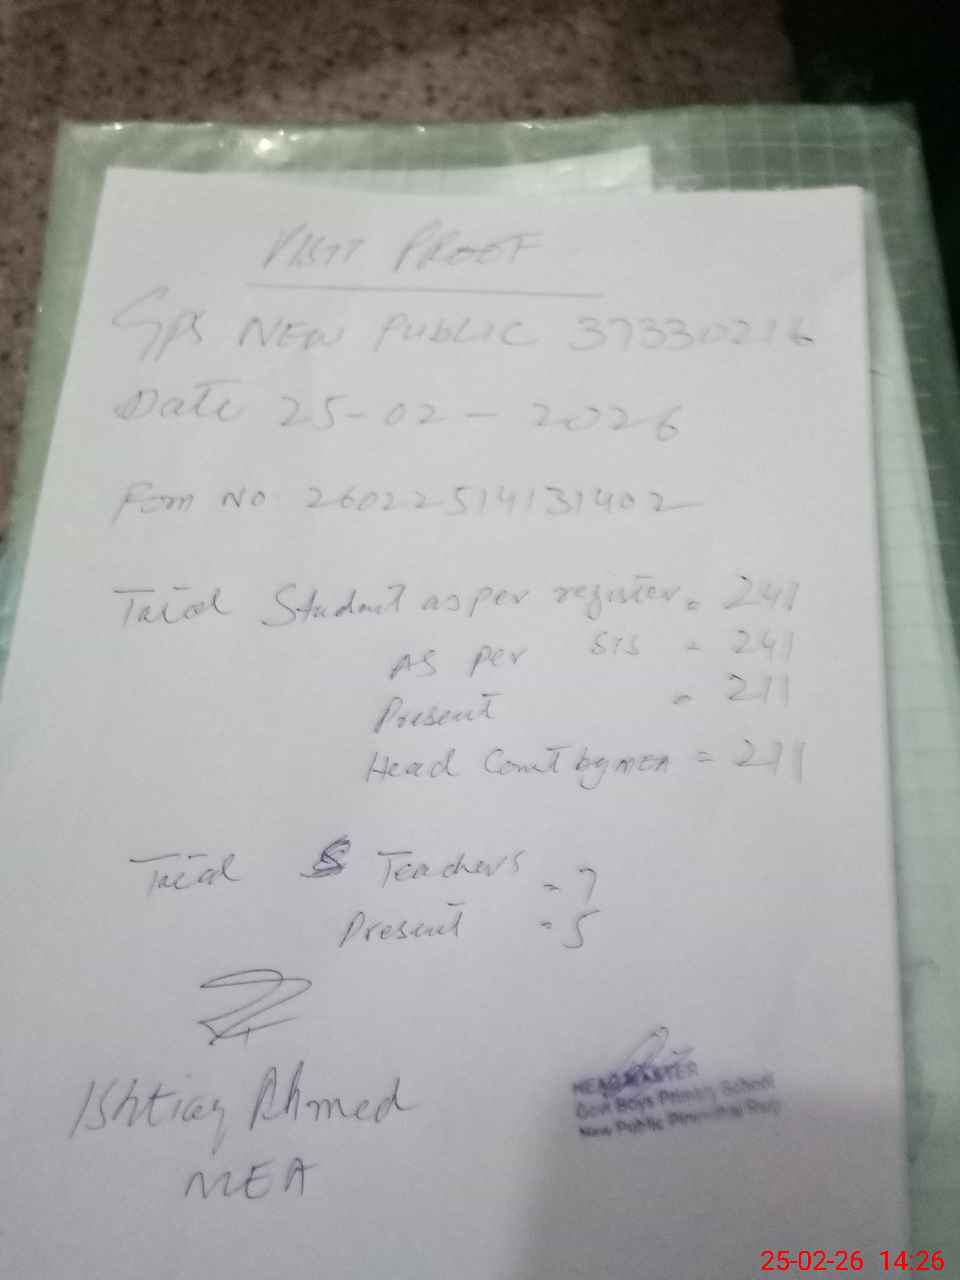 VISIT PROOF
GPS NEW PUBLIC 37330216
Date 25-02-2026
Form No 26022514131402
Total Student as per register = 241
AS per SIS = 241
Present = 211
Head Count by MEA = 211
Total Teachers = 7
Present = 5
Ishtiaq Ahmed
MEA
HEADMASTER
Govt Boys Primary School
New Public
25-02-26 14:26